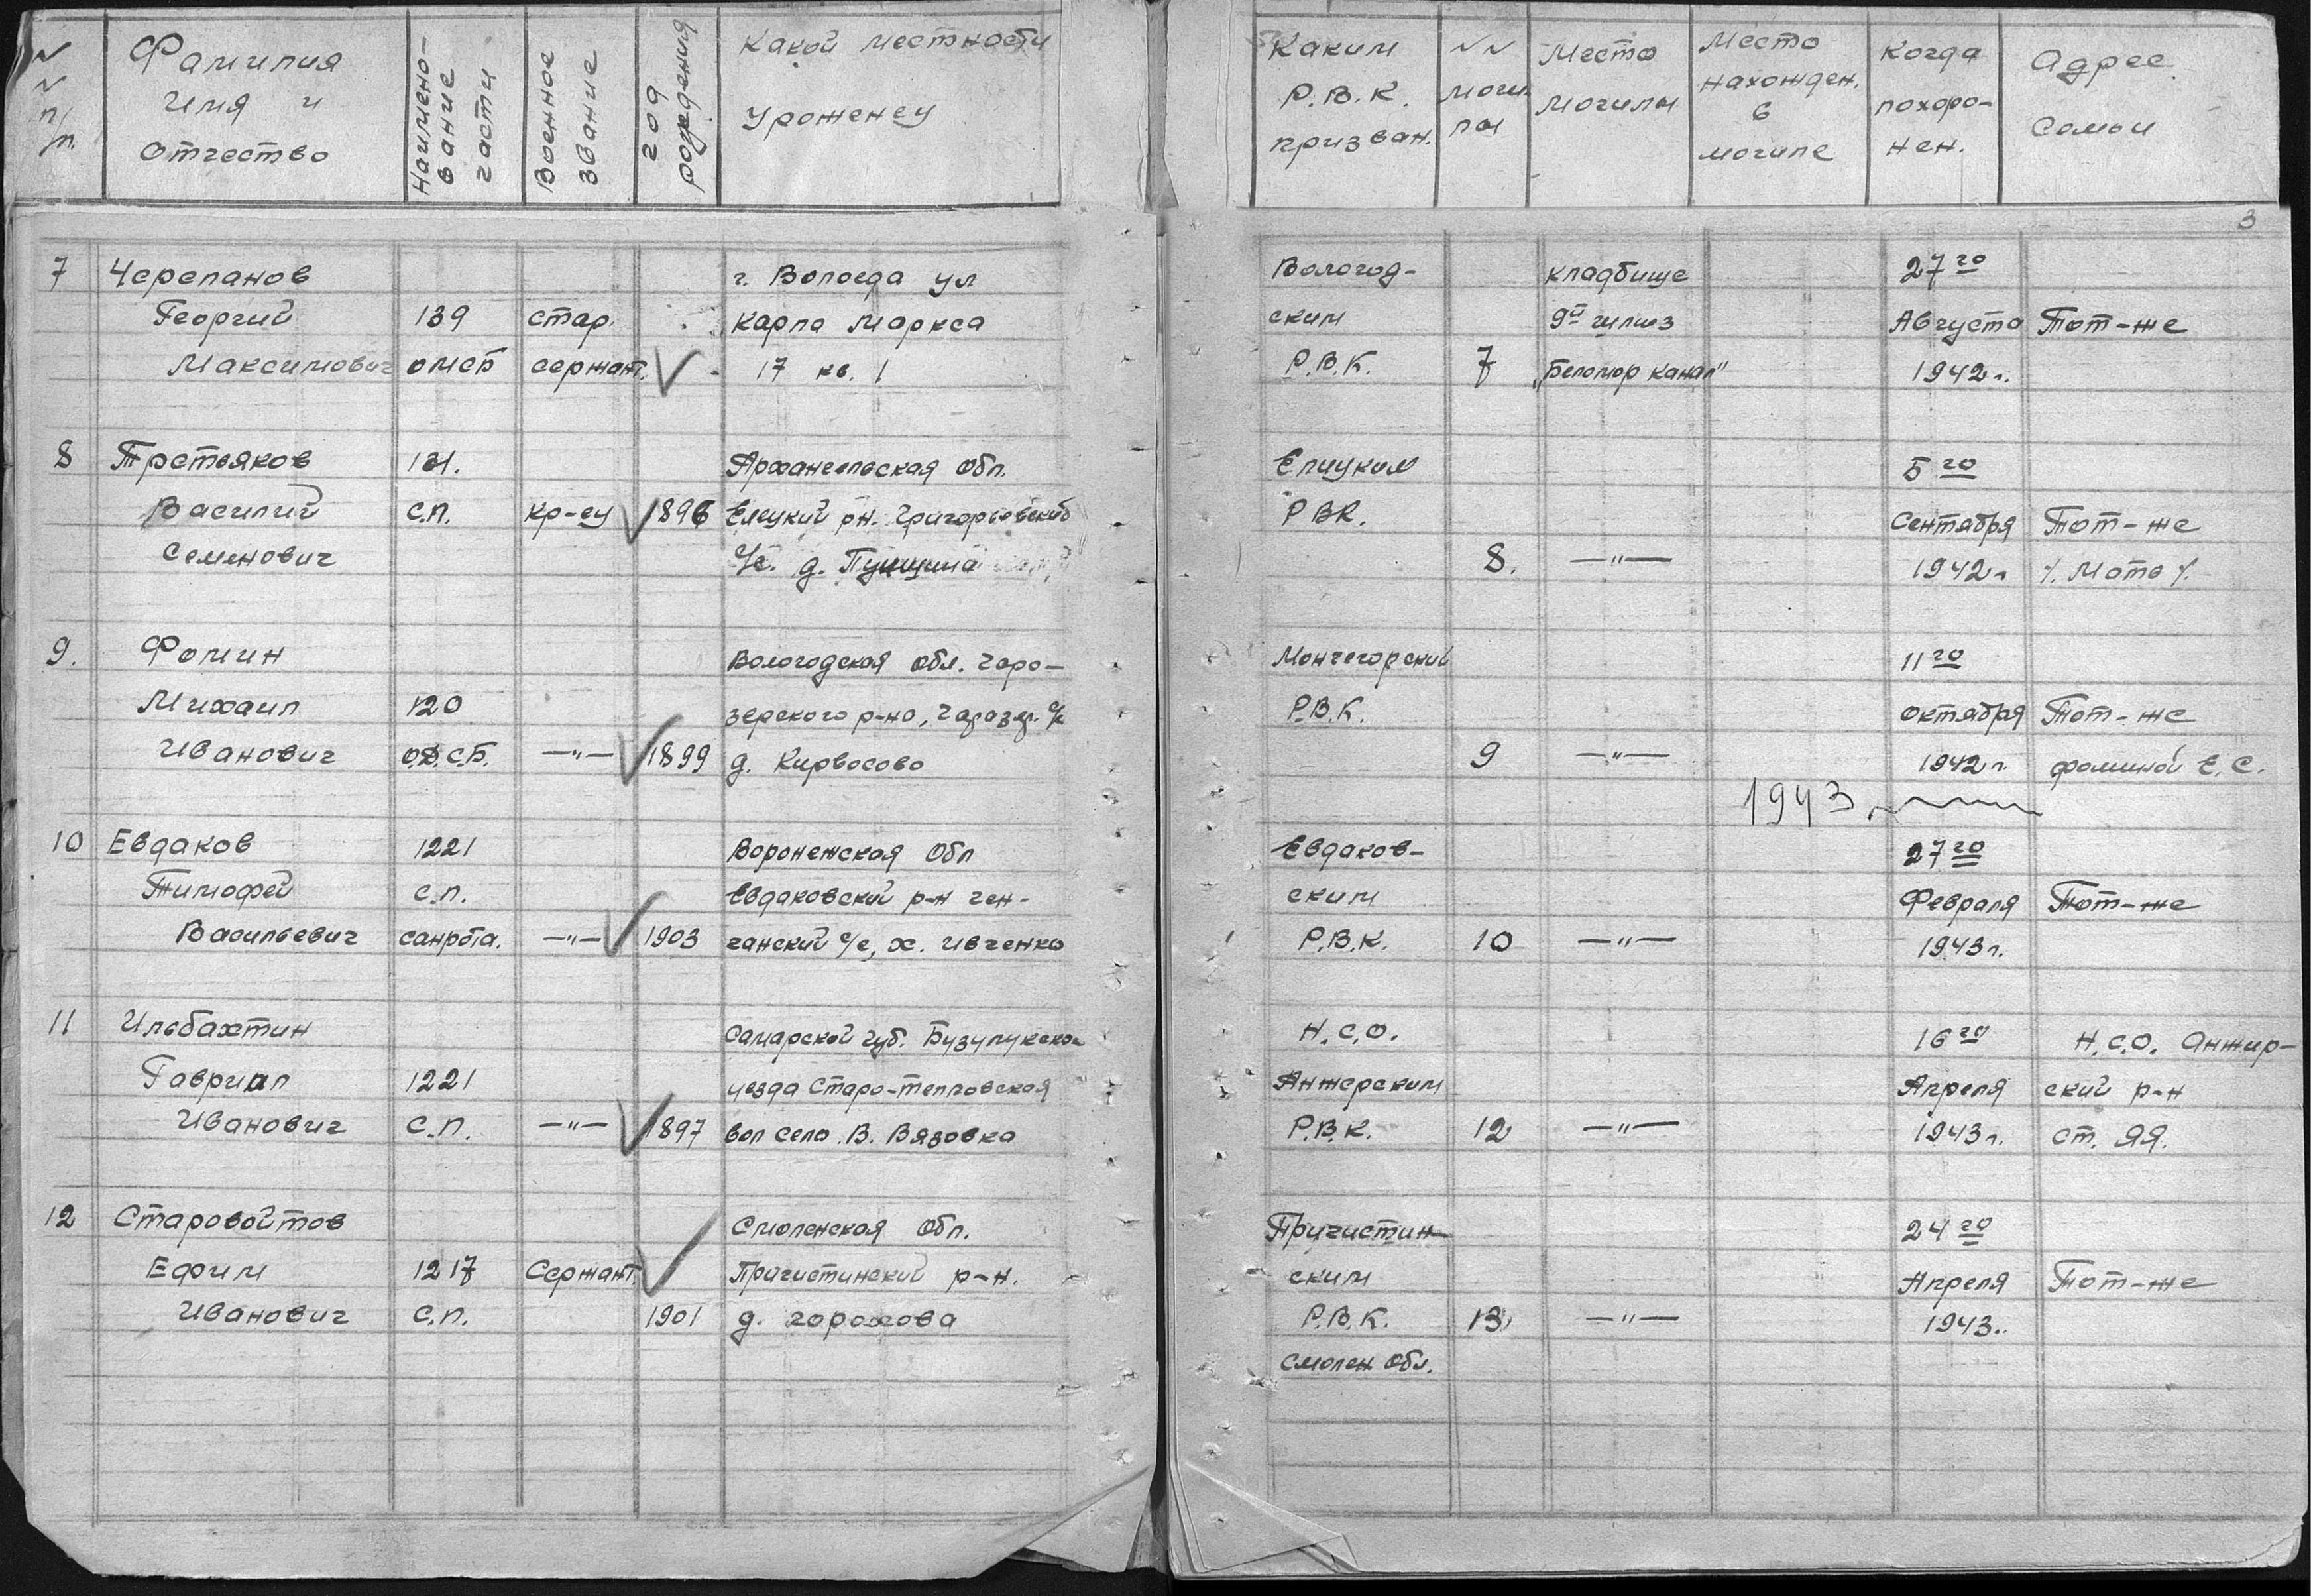 № № п/п.
Фамилия Имя и Отчество
Наименование части
Военное звание
год рождения
Какой местности уроженец
Каким Р.В.К. призван.
№№ могилы
Место могилы
Место нахожден. в могиле
Когда похоронен.
Адрес Семьи
3
7 Черепанов г. Вологда ул Вологод- кладбище 27го
Георгий 139 стар. Карла Маркса ским 9й шлюз Августа Тот-же
Максимович омсб сержант. 17 кв. 1 Р.В.К. 7 „Беломор канал" 1942г.
8 Третьяков 131. Архангельская обл. Елицким 5го
Василий с.п. кр-ец 1896 Елецкий рн. Григорьевский РВК. Сентября Тот-же
Семенович с/с. д. 8. —"— 1942г /. Мать /.
9. Фомин Вологодская обл. Чаро- Мончегорский 11го
Михаил 120 зерского р-на, Чарозер. с/с Р.В.К. октября Тот-же
Иванович О.Д.С.Б. —"— 1899 д. Кирвосово 9 —"— 1942г. фоминой Е.С.
1943
10 Евдаков 1221 Вороненская Обл Евдаков- 27го
Тимофей с.п. Евдаковский р-н ген- ским Февраля Тот-же
Васильевич санрота. —"— 1903 ганский с/с, х. Ивченко Р.В.К. 10 —"— 1943г.
11 Ильбахтин Самарской губ. Бузулукской Н.С.О. 16го Н.С.О. Анжер-
Гавриил 1221 уезда Старо-тепловская Анжерским Апреля ский р-н
Иванович с.п. —"— 1897 вол село. В. Вязовка Р.В.К. 12 —"— 1943г. ст. ЯЯ.
12 Старовойтов Смоленская Обл. Пручистин- 24го
Ефим 1217 Сержант Причистинский р-н. ским Апреля Тот-же
Иванович с.п. 1901 д. горохова Р.В.К. 13 —"— 1943г.
Смолен обл.